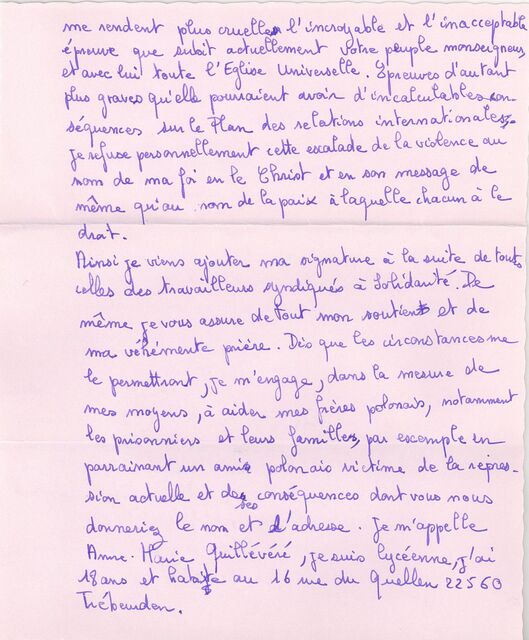 me rendent plus cruelles l'incroyable et l'inacceptable
épreuve que subit actuellement Votre peuple monseigneur
et avec lui toute l'Eglise Universelle. Epreuves d'autant
plus graves qu'elle pourraient avoir d'incalculables con-
séquences sur le Plan des relations internationales.
Je refuse personnellement cette escalade de la violence au
nom de ma foi en le Christ et en son message de
même qu'au nom de la paix à laquelle chacun à le
droit.
Ainsi je viens ajouter ma signature à la suite de toutes
celles des travailleurs syndiqués à Solidarité. De
même je vous assure de tout mon soutien et de
ma véhémente prière. Dès que les circonstances me
le permettront, je m'engage, dans la mesure de
mes moyens, à aider mes frères polonais, notamment
les prisonniers et leurs familles, par exemple en
parrainant un ami polonais victime de la répres-
sion actuelle et de ses conséquences dont vous nous
donneriez le nom et l'adresse. Je m'appelle
Anne-Marie Quillévéré, je suis lycéenne, j'ai
18 ans et habite au 16 rue du Quellen 22560
Trébeurden.